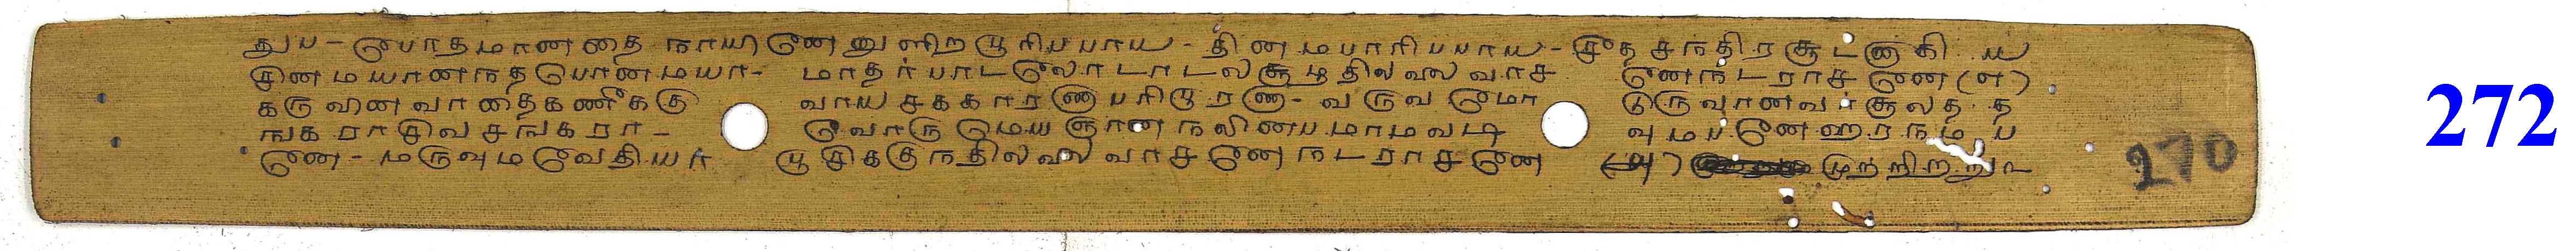 துப - போதமானதை நாயனேனுளிற பூரிபபாய - தினமபாரிபபாய - சீத சநதிரசூடனகி ய
சினமயானநத பொனமயா - மாதர்பாடலோடாடலசூழதிலலை வாச னேநடராசனே (எ)
கருவினவாதைகணீககு வாய சககாரணபரிபூரண - வருவமோ டுருவானவர்குலத த
ஙகராசிவசஙகரா - வோருமெய ஞானநலினபமாமவடி வுமபனேஹரநமப
னே - மருவுமவேதியர் பூசிககுநதிலலை வாசனேநடராசனே (அ) முறறிறறு உ
270
272